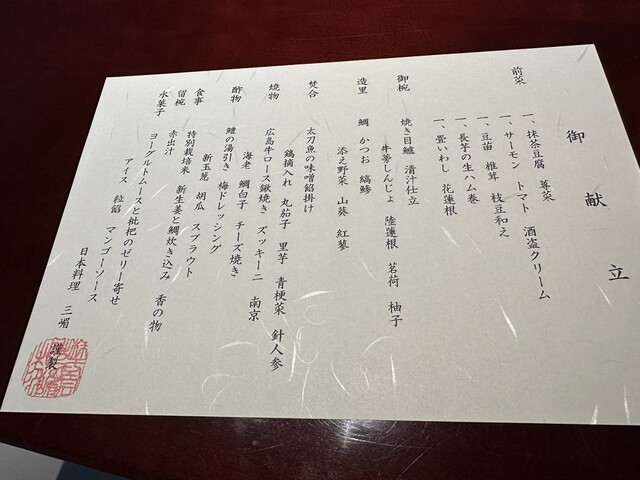 御献立
前菜
一、抹茶豆腐 蓴菜
一、サーモン トマト 酒盗クリーム
一、豆苗 椎茸 枝豆和え
一、長芋の生ハム巻
一、畳いわし 花蓮根
御椀
焼き目鱸 清汁仕立
牛蒡しんじょ 陸蓮根 茗荷 柚子
造里
鯛 かつお 縞鯵
添え野菜 山葵 紅蓼
焚合
太刀魚の味噌餡掛け
鶏摘入れ 丸茄子 里芋 青梗菜 針人参
焼物
広島牛ロース鍬焼き ズッキーニ 南京
海老 鯛白子 チーズ焼き
酢物
鱧の湯引き 梅ドレッシング
新玉葱 胡瓜 スプラウト
食事
特別栽培米 新生姜と鯛炊き込み 香の物
留椀
赤出汁
水菓子
ヨーグルトムースと枇杷のゼリー寄せ
アイス 粒餡 マンゴーソース
日本料理 三嵋
謹製